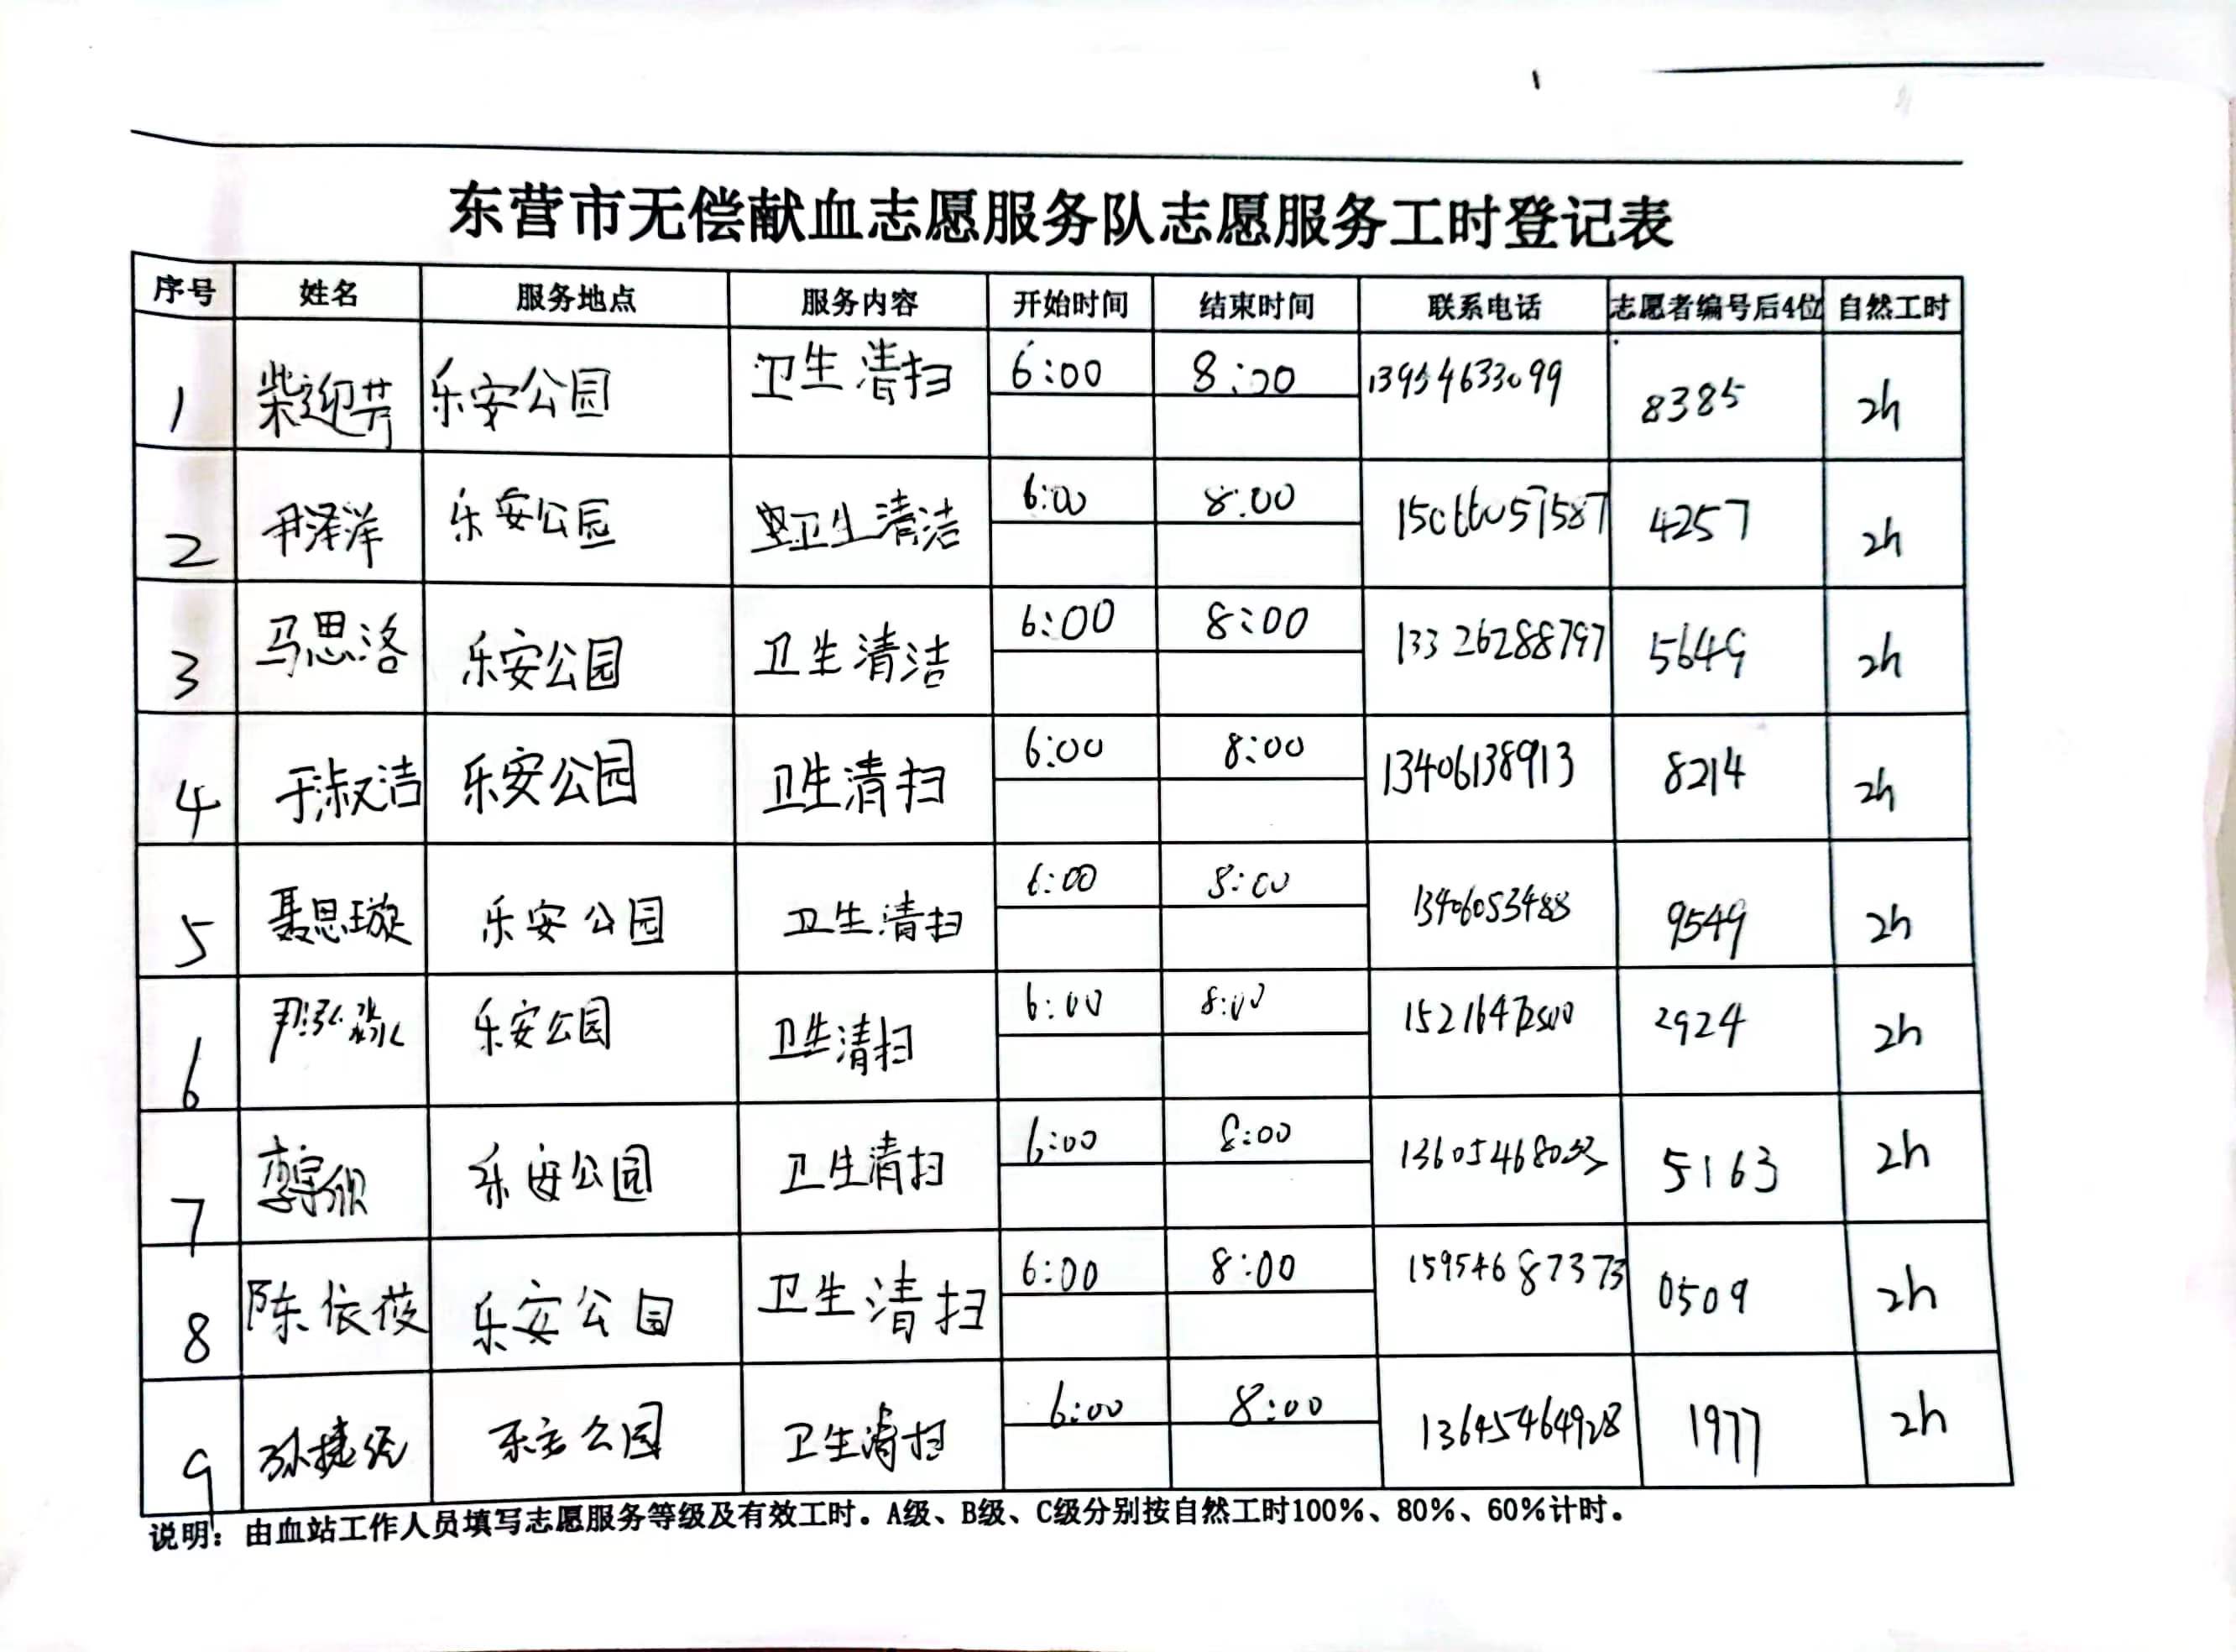 东营市无偿献血志愿服务队志愿服务工时登记表
序号 姓名 服务地点 服务内容 开始时间 结束时间 联系电话 志愿者编号后4位 自然工时
1 柴迎芳 乐安公园 卫生清扫 6:00 8:00 13954633099 8385 2h
2 尹泽洋 乐安公园 卫生清洁 6:00 8:00 4257 2h
3 马思洛 乐安公园 卫生清洁 6:00 8:00 13326288797 5649 2h
4 于淑洁 乐安公园 卫生清扫 6:00 8:00 13406138913 8214 2h
5 聂思璇 乐安公园 卫生清扫 6:00 8:00 13406053488 9549 2h
6 尹泓淼 乐安公园 卫生清扫 6:00 8:00 2924 2h
7 乐安公园 卫生清扫 6:00 8:00 5163 2h
8 陈依莜 乐安公园 卫生清扫 6:00 8:00 15954687373 0509 2h
9 乐安公园 卫生清扫 6:00 8:00 13645464928 1977 2h
说明：由血站工作人员填写志愿服务等级及有效工时。A级、B级、C级分别按自然工时100%、80%、60%计时。